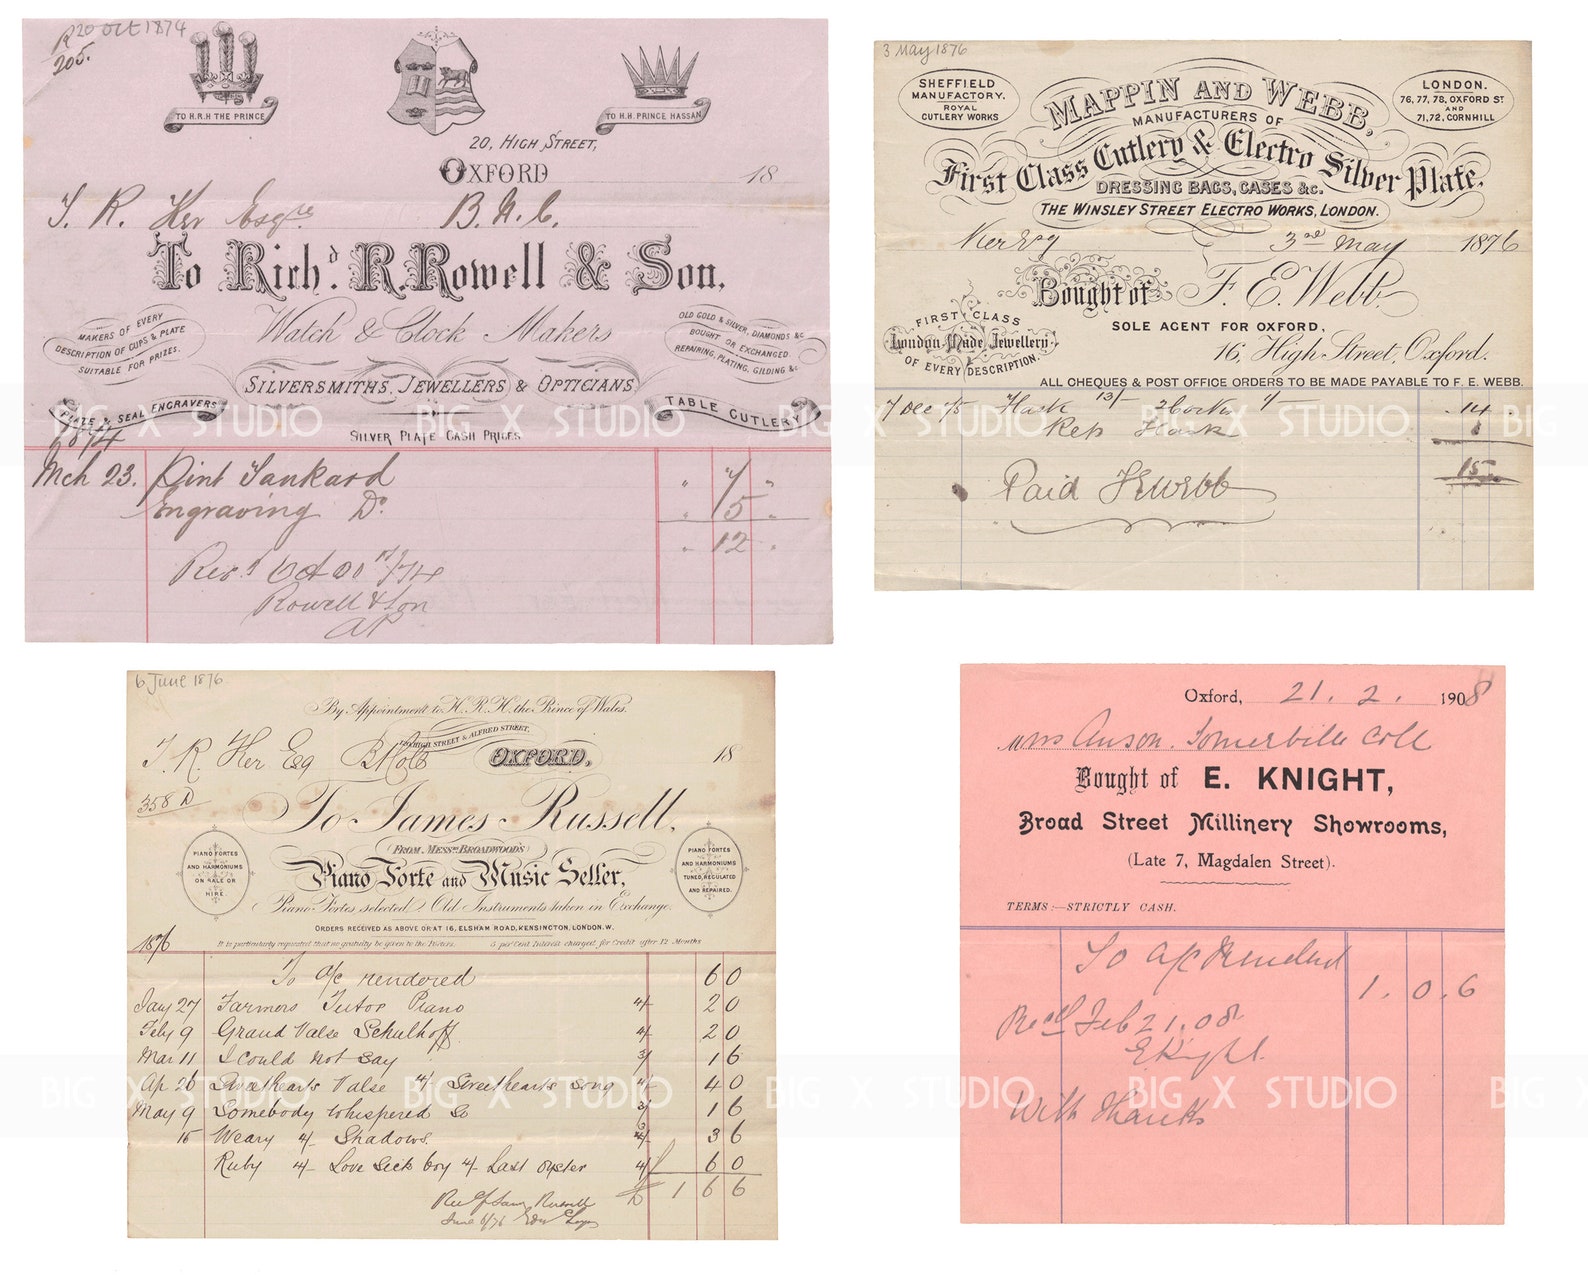 20 Oct 1874
205.
TO H.R.H THE PRINCE
TO H.H. PRINCE HASSAN
20, HIGH STREET,
OXFORD
18
T. R. Ker Esqre B.N.C.
To Richd. R. Rowell & Son,
Watch & Clock Makers
MAKERS OF EVERY
DESCRIPTION OF CUPS & PLATE
SUITABLE FOR PRIZES.
OLD GOLD & SILVER, DIAMONDS &c
BOUGHT OR EXCHANGED
REPAIRING, PLATING, GILDING &c
SILVERSMITHS, JEWELLERS & OPTICIANS
PLATE & SEAL ENGRAVERS
TABLE CUTLERY
SILVER PLATE CASH PRICES
1874
Mch 23. Pint Tankard " 7 "
Engraving Do. " 5 "
" 12 "
Rowell & Son
3 May 1876
SHEFFIELD
MANUFACTORY.
ROYAL
CUTLERY WORKS
MAPPIN AND WEBB,
MANUFACTURERS OF
First Class Cutlery & Electro Silver Plate,
DRESSING BAGS, CASES &c.
THE WINSLEY STREET ELECTRO WORKS, LONDON.
LONDON.
76, 77, 78, OXFORD ST
AND
71, 72, CORNHILL
Ker Esq 3rd May 1876
Bought of F. E. Webb
SOLE AGENT FOR OXFORD,
16, High Street, Oxford.
FIRST CLASS
London Made Jewellery
OF EVERY DESCRIPTION.
ALL CHEQUES & POST OFFICE ORDERS TO BE MADE PAYABLE TO F. E. WEBB.
7 Dec 75 Flask 13/- 1/- 14
Rep Flask 1
15
Paid F E Webb
6 June 1876
By Appointment to H.R.H. the Prince of Wales.
HIGH STREET & ALFRED STREET,
OXFORD,
T. R. Ker Esq
18
358 D
To James Russell,
(FROM MESSRS BROADWOOD'S)
Piano Forte and Music Seller,
PIANO FORTES
AND HARMONIUMS
ON SALE OR
HIRE
PIANO FORTES
AND HARMONIUMS
TUNED, REGULATED
AND REPAIRED.
Piano Fortes selected. Old Instruments taken in Exchange.
ORDERS RECEIVED AS ABOVE OR AT 16, ELSHAM ROAD, KENSINGTON, LONDON. W.
1876
It is particularly requested that no gratuity be given to the Tuners. 5 per Cent Interest charged for Credit after 12 Months
To a/c rendered 6 0
Jany 27 Farmers Tutor Piano 4/- 2 0
Feby 9 Grand Valse Schulhoff 4/- 2 0
Mar 11 I could not say 3/ 1 6
Ap 26 Sweethearts Valse 4/ Sweethearts Song 4/- 4 0
May 9 Somebody Whispered So 3/ 1 6
15 Weary 4/- Shadows. 3 6
Ruby 4/- Love Sick boy 4/- Last oyster 4/ 6 0
1 6 6
Oxford, 21. 2. 1908
Miss Anson. Somerville Coll
Bought of E. KNIGHT,
Broad Street Millinery Showrooms,
(Late 7, Magdalen Street).
TERMS:—STRICTLY CASH.
To a/c Rendered 1. 0. 6
Recd Feb 21. 08
E Knight.
With thanks
BIG X STUDIO BIG X STUDIO BIG X STUDIO BIG X STUDIO BIG
BIG X STUDIO BIG X STUDIO BIG X STUDIO BIG X STUDIO BIG